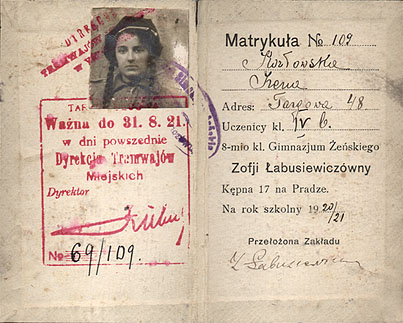 DYREKC
TRAMWAJÓW
W
TAR
Ważna do 31. 8. 21.
w dni powszednie
Dyrekcja Tramwajów
Miejskich
Dyrektor
No 69/109.
Matrykuła No 109
Kozłowska
Irena
Adres: Targowa 48.
Uczenicy kl. IV b.
8-mio kl. Gimnazjum Żeńskiego
Zofji Łabusiewiczówny
Kępna 17 na Pradze.
Na rok szkolny 1920/21
Przełożona Zakładu
Z Łabusiewicz